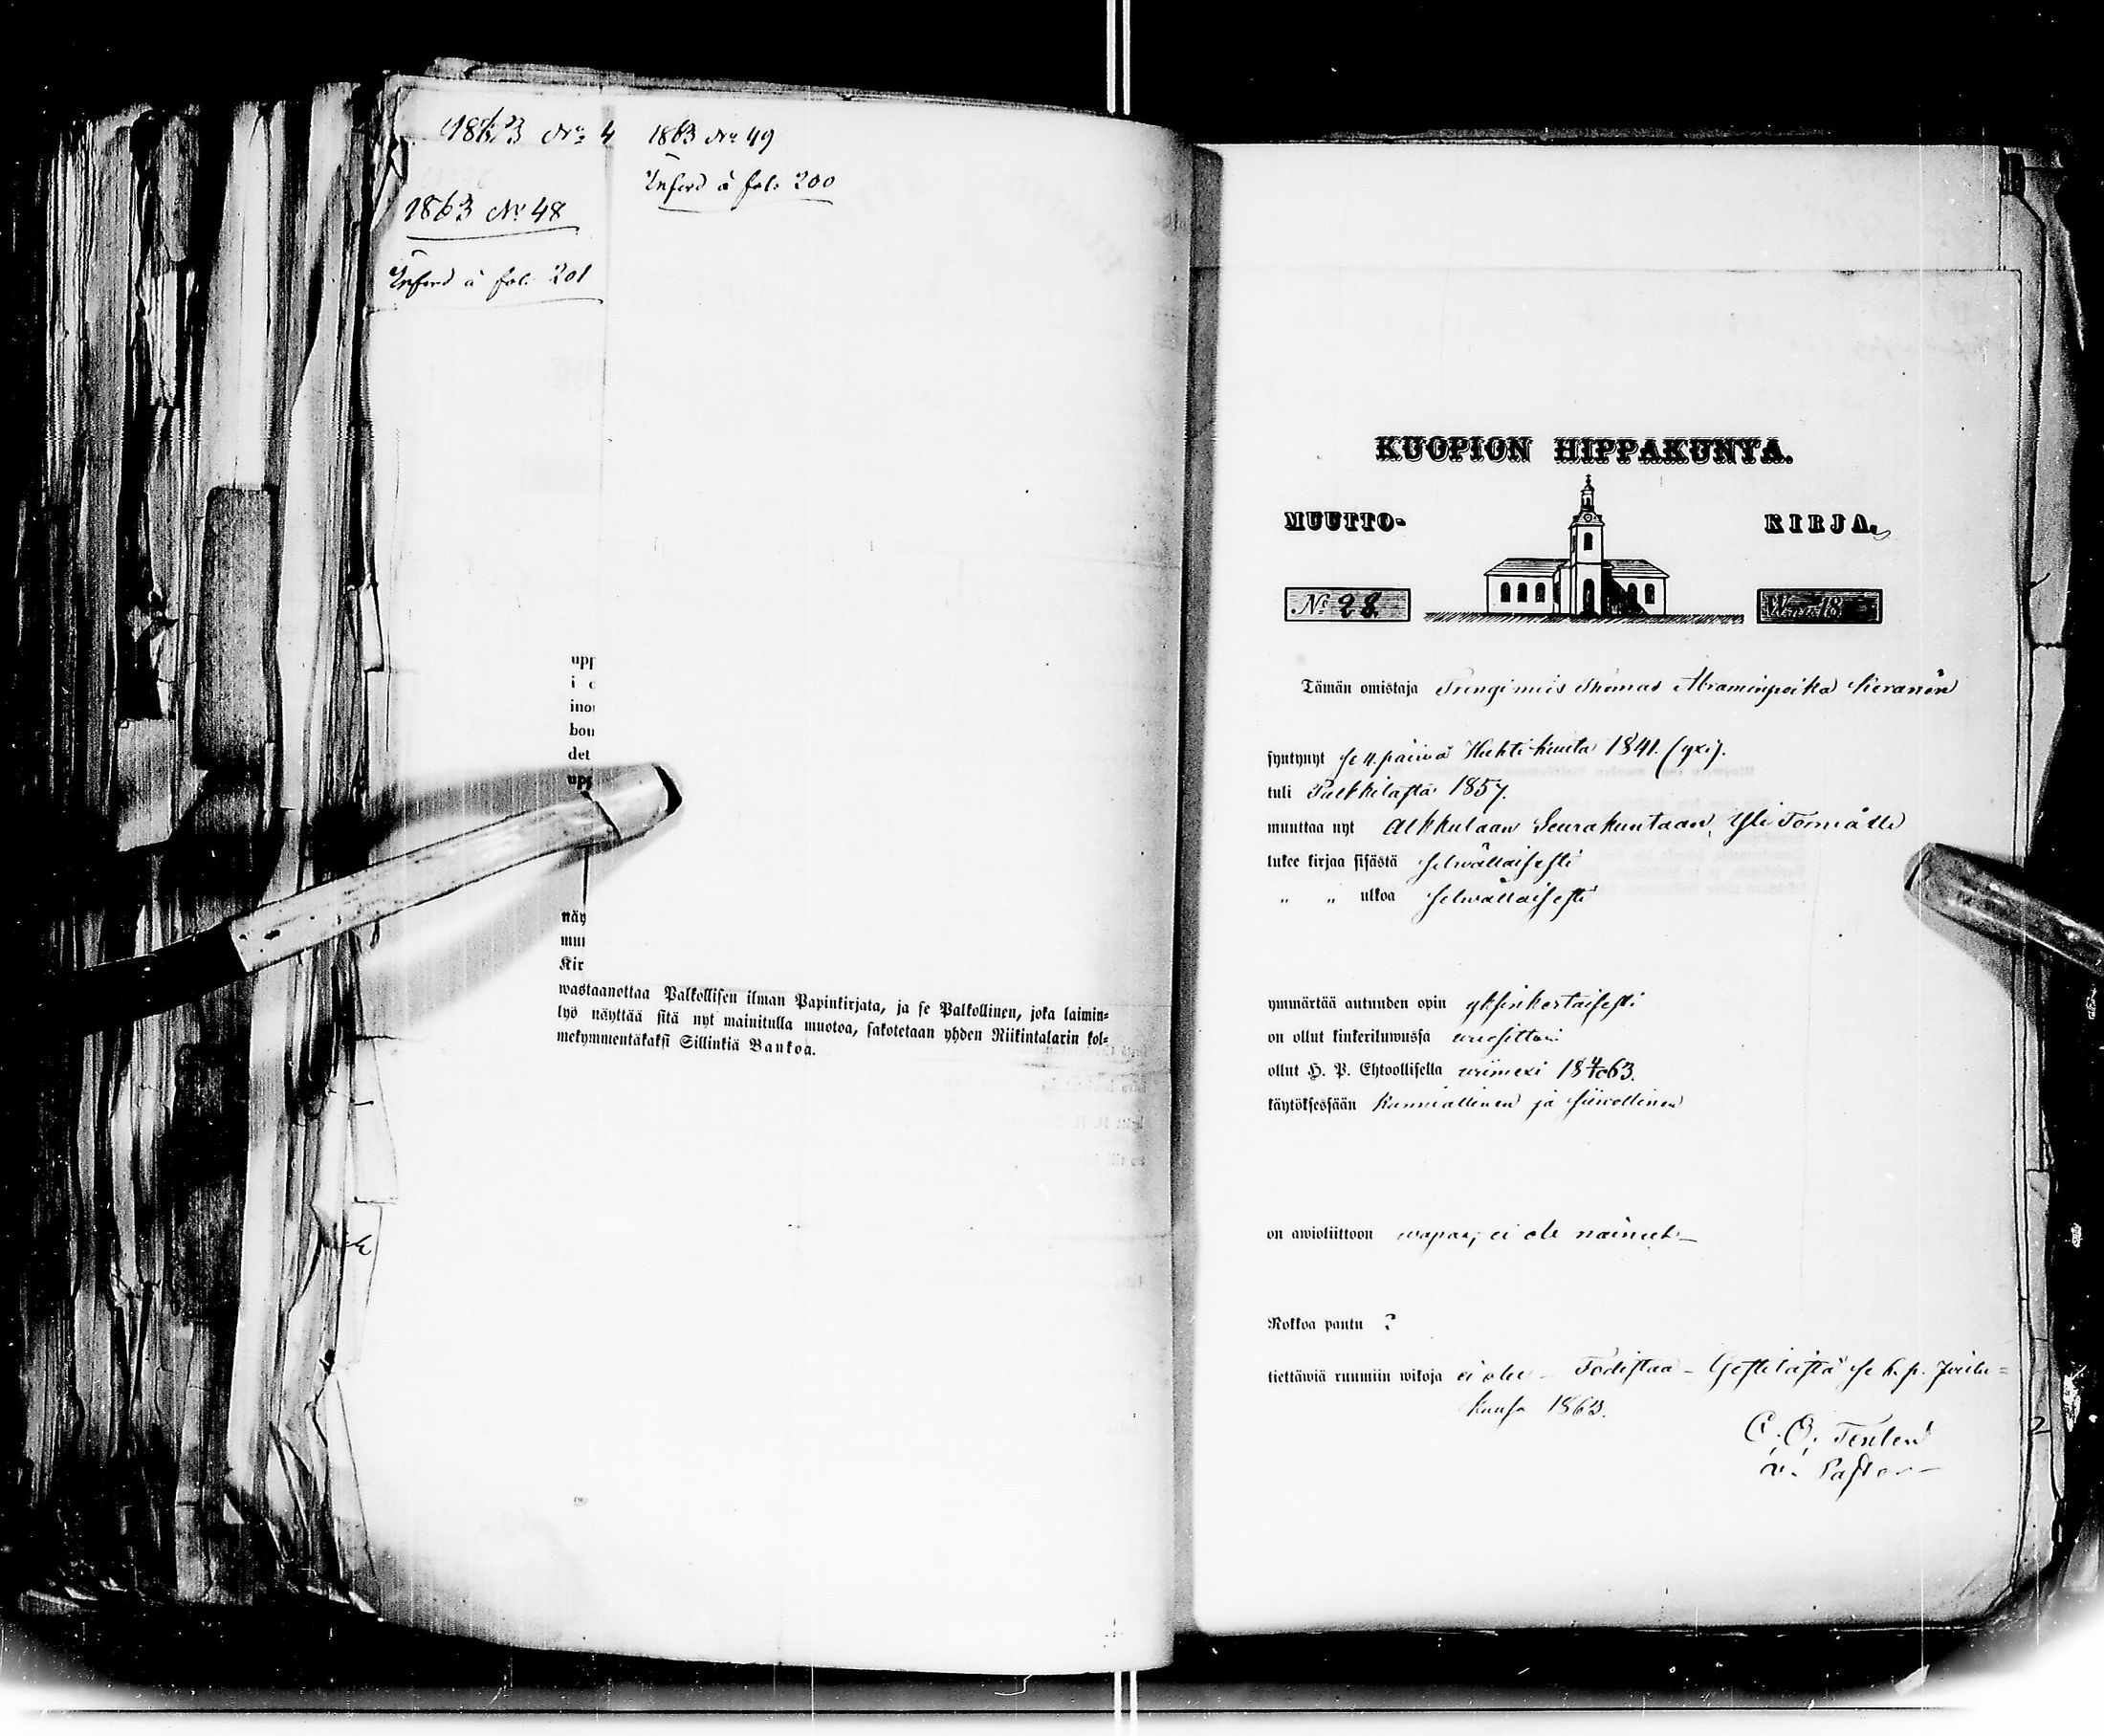 1863 No 4
1863 No 49
Inford à fol. 200
1863 No 48
Inford à fol. 201
upp
i
ino
bon
det
upp
näy
muu
Kir
wastaanottaa Palkollisen ilman Papinkirjata, ja se Palkollinen, joka laimin-
lyö näyttää sitä nyt mainitulla muotoa, sakotetaan yhden Riikintalarin kol-
mekymmentäkaksi Sillinkiä Bankoa.
KUOPION HIPPAKUNTA.
MUUTTO- KIRJA.
No 28. Wuna 18
Tämän omistaja Trengimies Thomas Abraminpoika Kieranen
syntynyt se 4. päiwä Huhtikuuta 1841. (yxi).
tuli Pulkkilasta 1857.
muuttaa nyt Alkkulaan Seurakuntaan, Yli Torniålle
lukee kirjaa sisästä selwällaisesti
" " ulkoa selwällaisesti
ymmärtää autuuden opin yksinkertaisesti
on ollut kinkeriluwussa wuosittain
ollut H. P. Ehtoollisella wiimexi 18 4/6 63.
käytöksessään kunniallinen ja siiwollinen
on awioliittoon wapaa, ei ole nainut
Rokkoa pantu ?
tiettäwiä ruumiin wikoja ei ole – Todistaa – Gestilästä se 6. p. Joulu=
kuusa 1863.
C. O.
v. Pastor